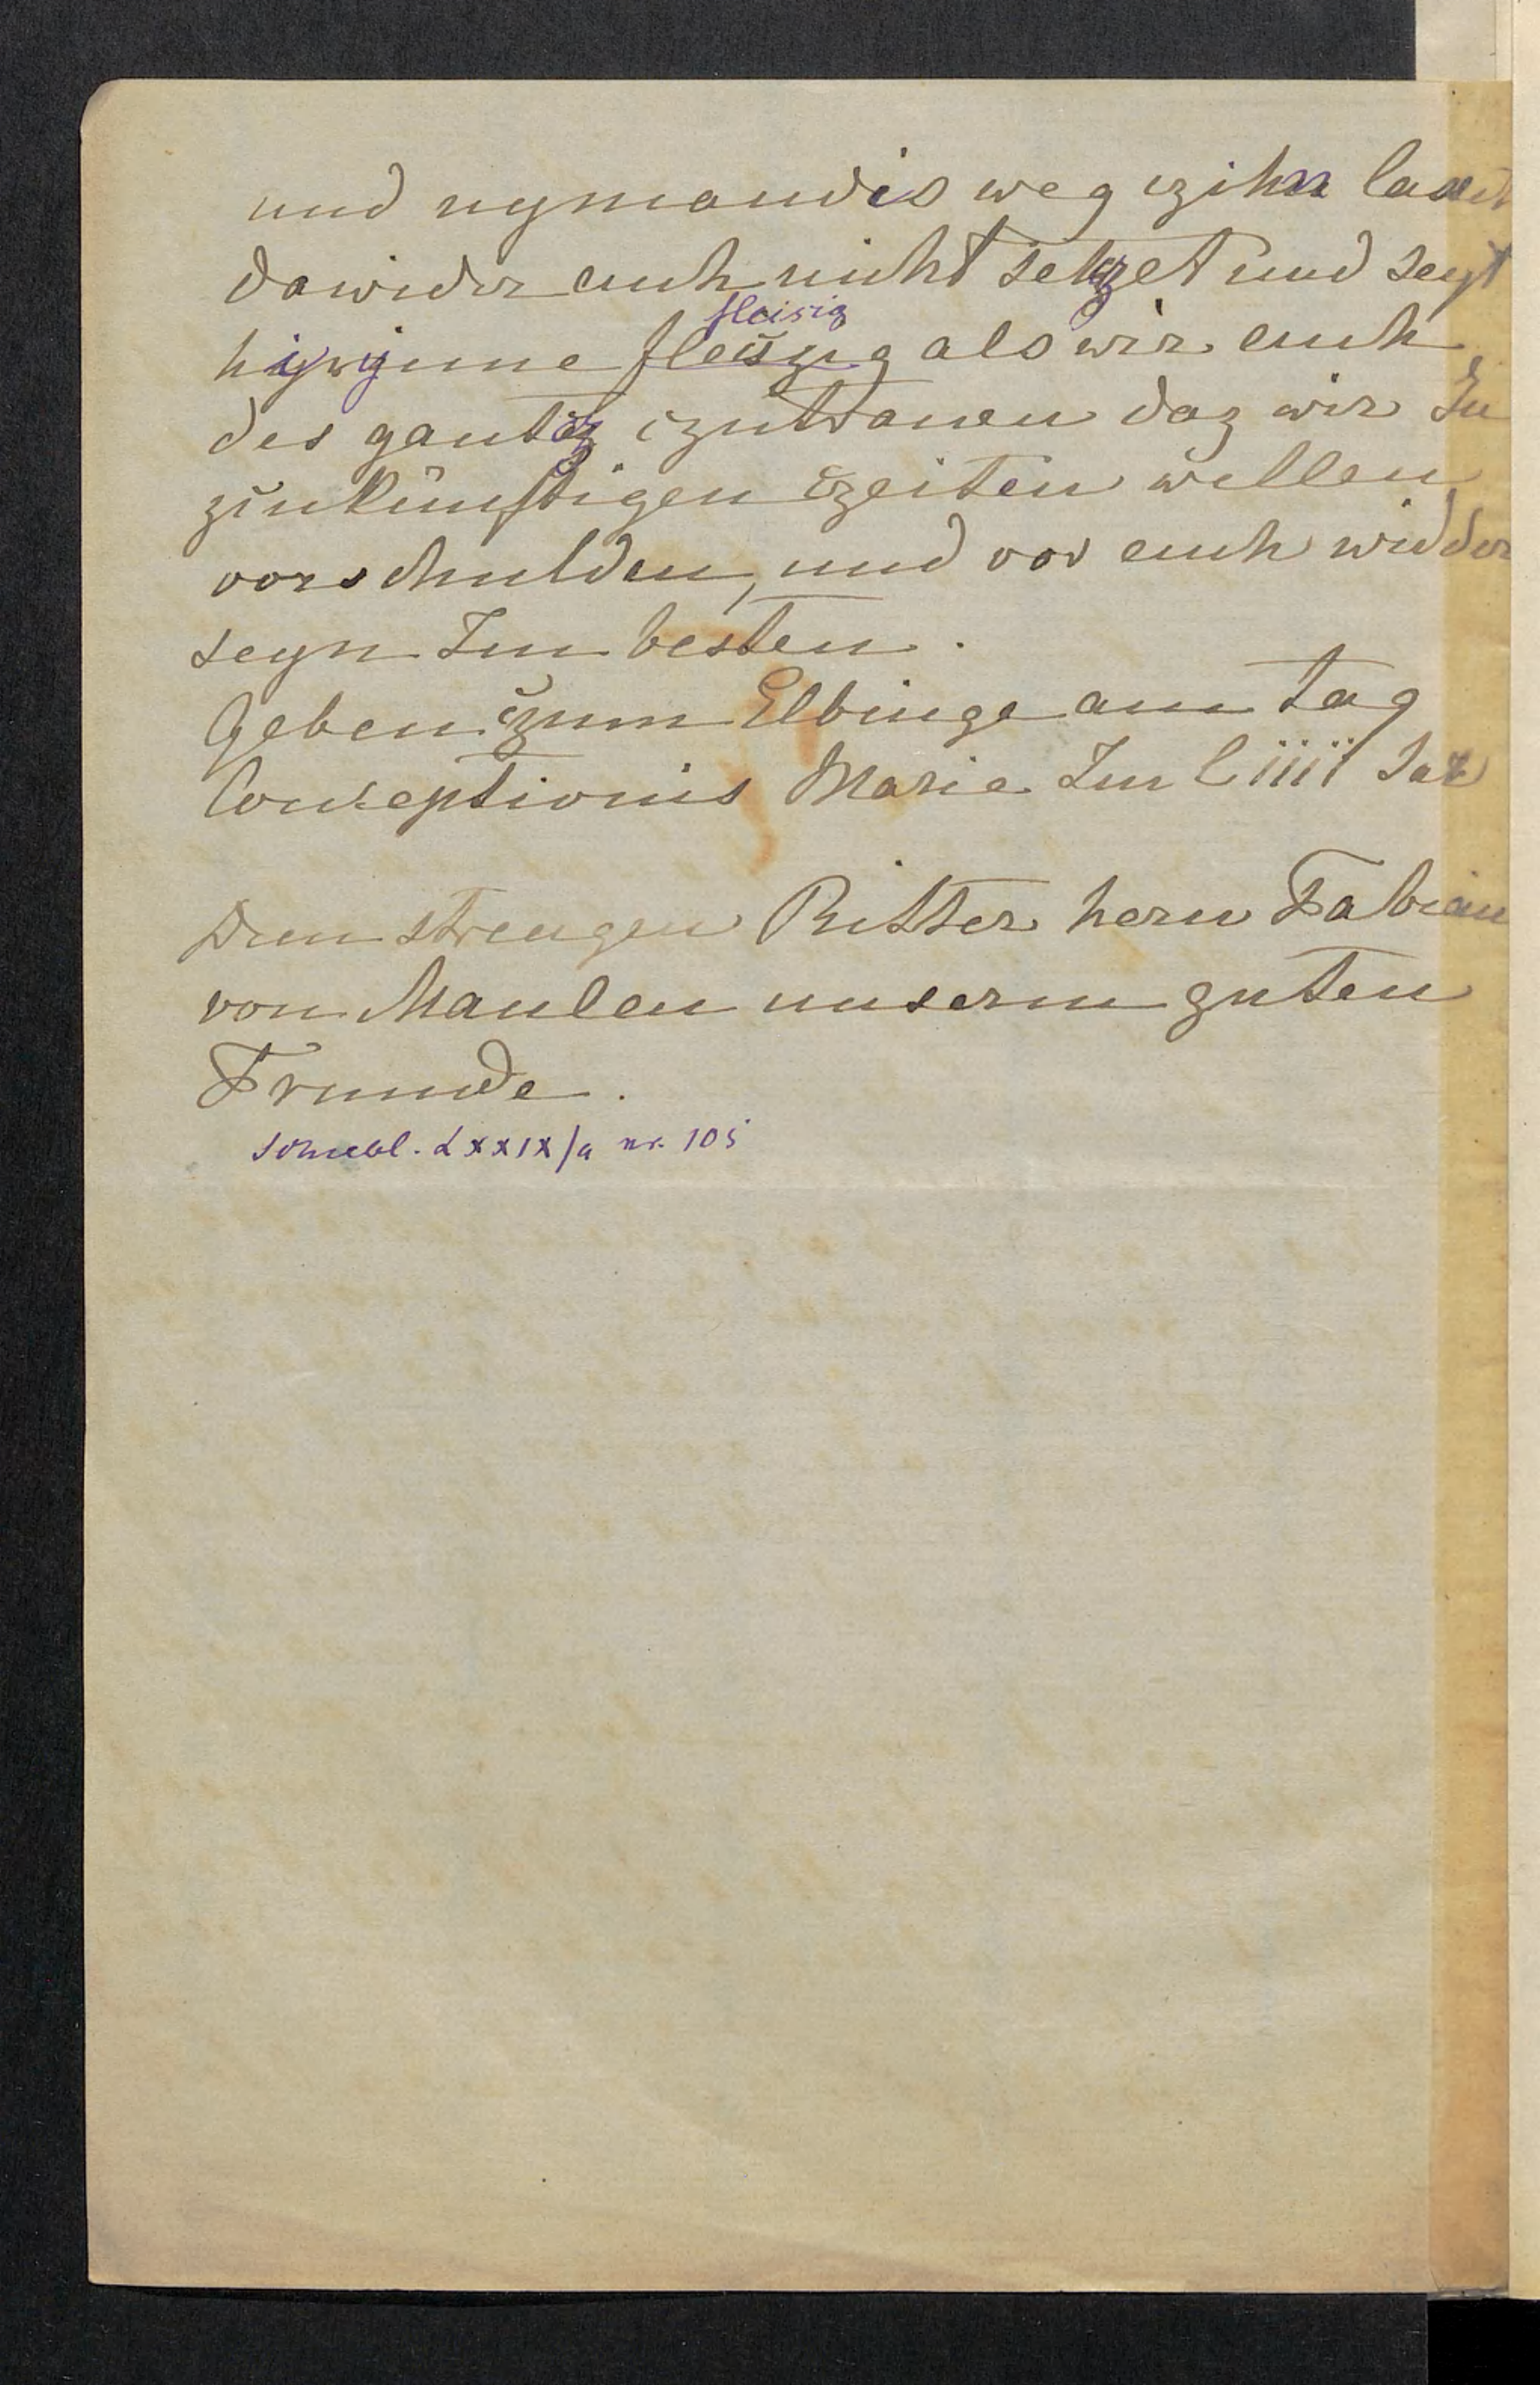 und nymandis weg czihn laset
dawider euch nicht setczet und seyt
fleisig
hiryinne fleiszug als wir euch
des gantcz czutrauen daz wir In
zukunftigen czeiten wellen
vorschulden, und vor euch widder
seyn Im besten.
Geben czum Elbinge am tag
Conceptionis Marie Im Liiii Jar
Dem strengen Ritter hern Fabian
von Maulen unserm guten
Frunde.
Schiebl. LXXIX/a nr. 105